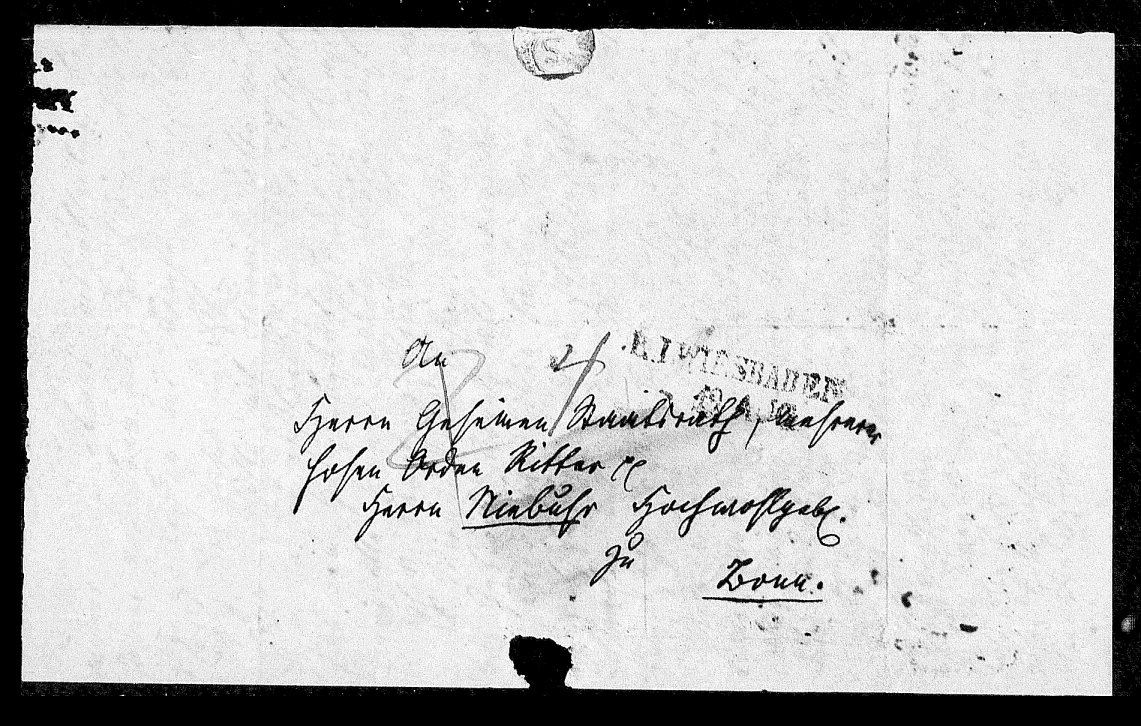 An
R.1 WIESBADEN
Herrn Geheimen Staatsrath, mehrerer
hohen Orden Ritter pp
Herrn Niebuhr Hochwohlgeb.
zu
Bonn.